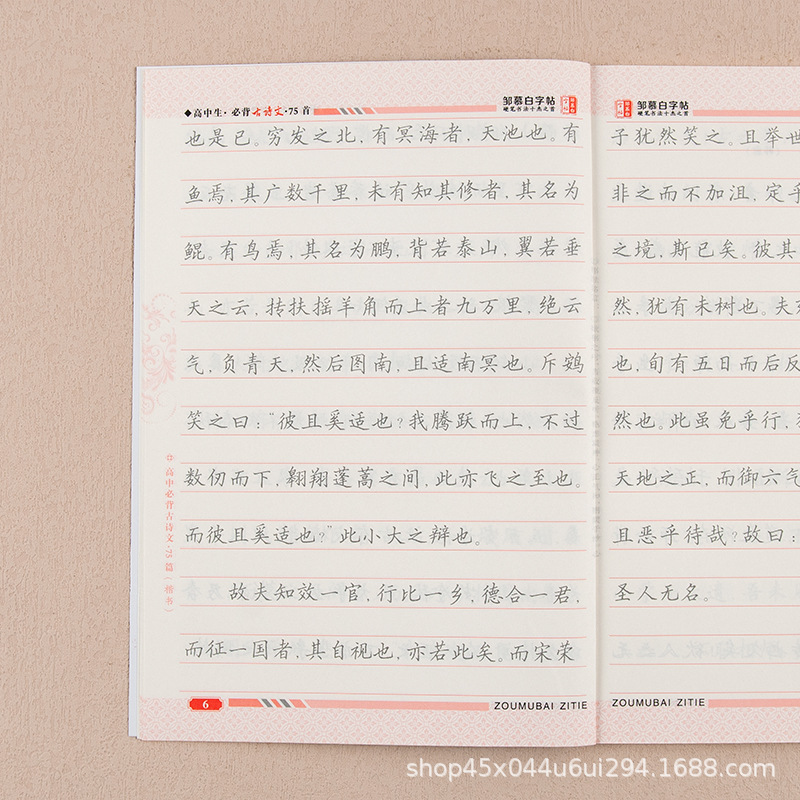 ◆高中生·必背古诗文·75首
邹慕白字帖
硬笔书法十杰之首
也是已。穷发之北，有冥海者，天池也。有
鱼焉，其广数千里，未有知其修者，其名为
鲲。有鸟焉，其名为鹏，背若泰山，翼若垂
天之云，抟扶摇羊角而上者九万里，绝云
气，负青天，然后图南，且适南冥也。斥鴳
笑之曰：“彼且奚适也？我腾跃而上，不过
数仞而下，翱翔蓬蒿之间，此亦飞之至也。
而彼且奚适也？”此小大之辩也。
故夫知效一官，行比一乡，德合一君，
而征一国者，其自视也，亦若此矣。而宋荣
高中必背古诗文·75篇（楷书）
6
ZOUMUBAI ZITIE
邹慕白字帖
硬笔书法十杰之首
子犹然笑之。且举世
非之而不加沮，定乎
之境，斯已矣。彼其
然，犹有未树也。夫
也，旬有五日而后反
然也。此虽免乎行，
天地之正，而御六气
且恶乎待哉？故曰：
圣人无名。
ZOUMUBAI ZITIE
shop45x044u6ui294.1688.com